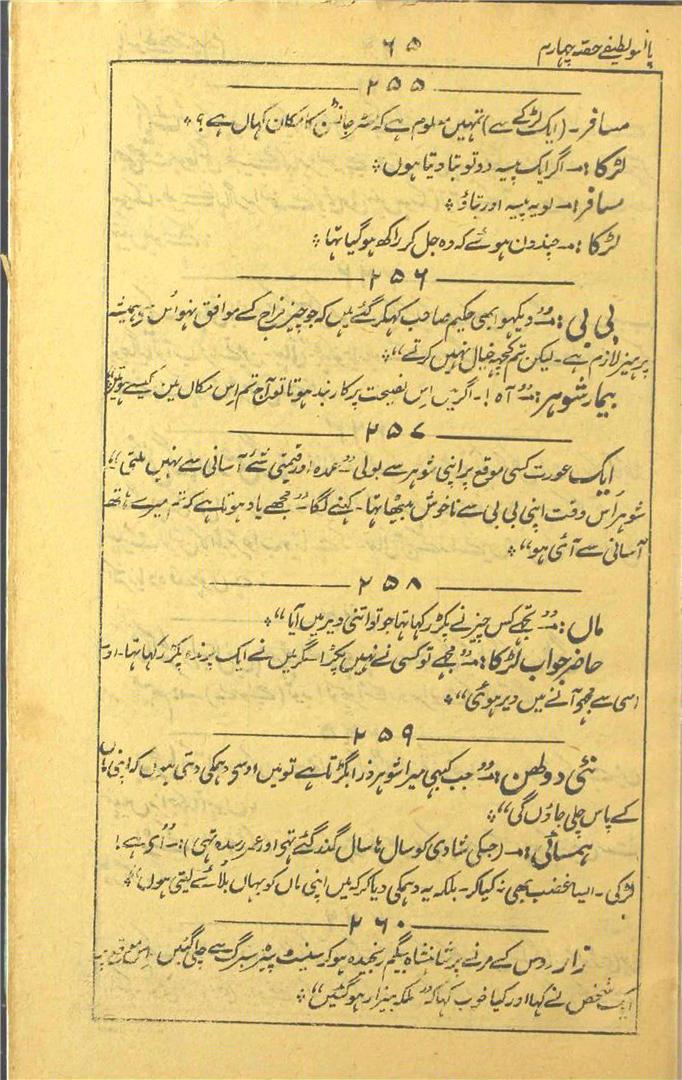 پانسو لطیفے حصہ چہارم
۶۵
۲۵۵
مسافر۔ (ایک لڑکے سے) تمہیں معلوم ہے کہ سر جانٹن کا مکان کہاں ہے؟
لڑکا:۔ اگر ایک پیسہ دو تو بتا دیتا ہوں
مسافر:۔ لو یہ پیسہ اور بتاؤ
لڑکا:۔ چند دن ہوئے کہ وہ جل کر راکھ ہو گیا تھا
۲۵۶
بی بی:۔ "دیکھو ابھی حکیم صاحب کہہ کر گئے ہیں کہ جو چیز مزاج کے موافق نہو اُس سے ہمیشہ
پرہیز لازم ہے۔ لیکن تم کچھ خیال نہیں کرتے"
بیمار شوہر:۔ "آہ! ۔ اگر میں اس نصیحت پر کاربند ہوتا تو آج تم اس مکان میں کیسے ہوتیں"
۲۵۷
ایک عورت کسی موقع پر اپنی شوہر سے بولی "عمدہ اور قیمتی شئے آسانی سے نہیں ملتی"
شوہر اُس وقت اپنی بی بی سے ناخوش بیٹھا تھا۔ کہنے لگا۔ "مجھے یاد ہوتا ہے کہ تم میرے ہاتھ
آسانی سے آئی ہو"
۲۵۸
ماں:۔ "تجھے کس چیز نے پکڑ رکھا تھا جو تو اتنی دیر میں آیا"
حاضر جواب لڑکا:۔ "مجھے تو کسی نے نہیں پکڑا مگر میں نے ایک پرندہ پکڑ رکھا تھا۔ اور
اسی سے مجھ آنے میں دیر ہوئی"
۲۵۹
نئی دولھن:۔ "جب کبھی میرا شوہر ذرا بگڑتا ہے تو میں اوسی دہمکی دیتی ہوں کہ اپنی ماں
کے پاس چلی جاؤں گی"
ہمسائی:۔ (جسکی شادی کو سال ہا سال گذر گئے تہی اور عمر رسیدہ تہی):۔ "اُی ہے!
لڑکی۔ ایسا غضب بھی نہ کیا کر۔ بلکہ یہ دہمکی دیا کر کہ میں اپنی ماں کو یہاں بلائے لیتی ہوں"
۲۶۰
زار روس کے مرنے پر شاہنشاہ بیگم رنجیدہ ہو کر سینٹ پیٹرسبرگ سے چلی گئیں اس موقع پر
ایک شخص نے کہا اور کیا خوب کہا کہ "ملکہ بیزار ہو گئیں"